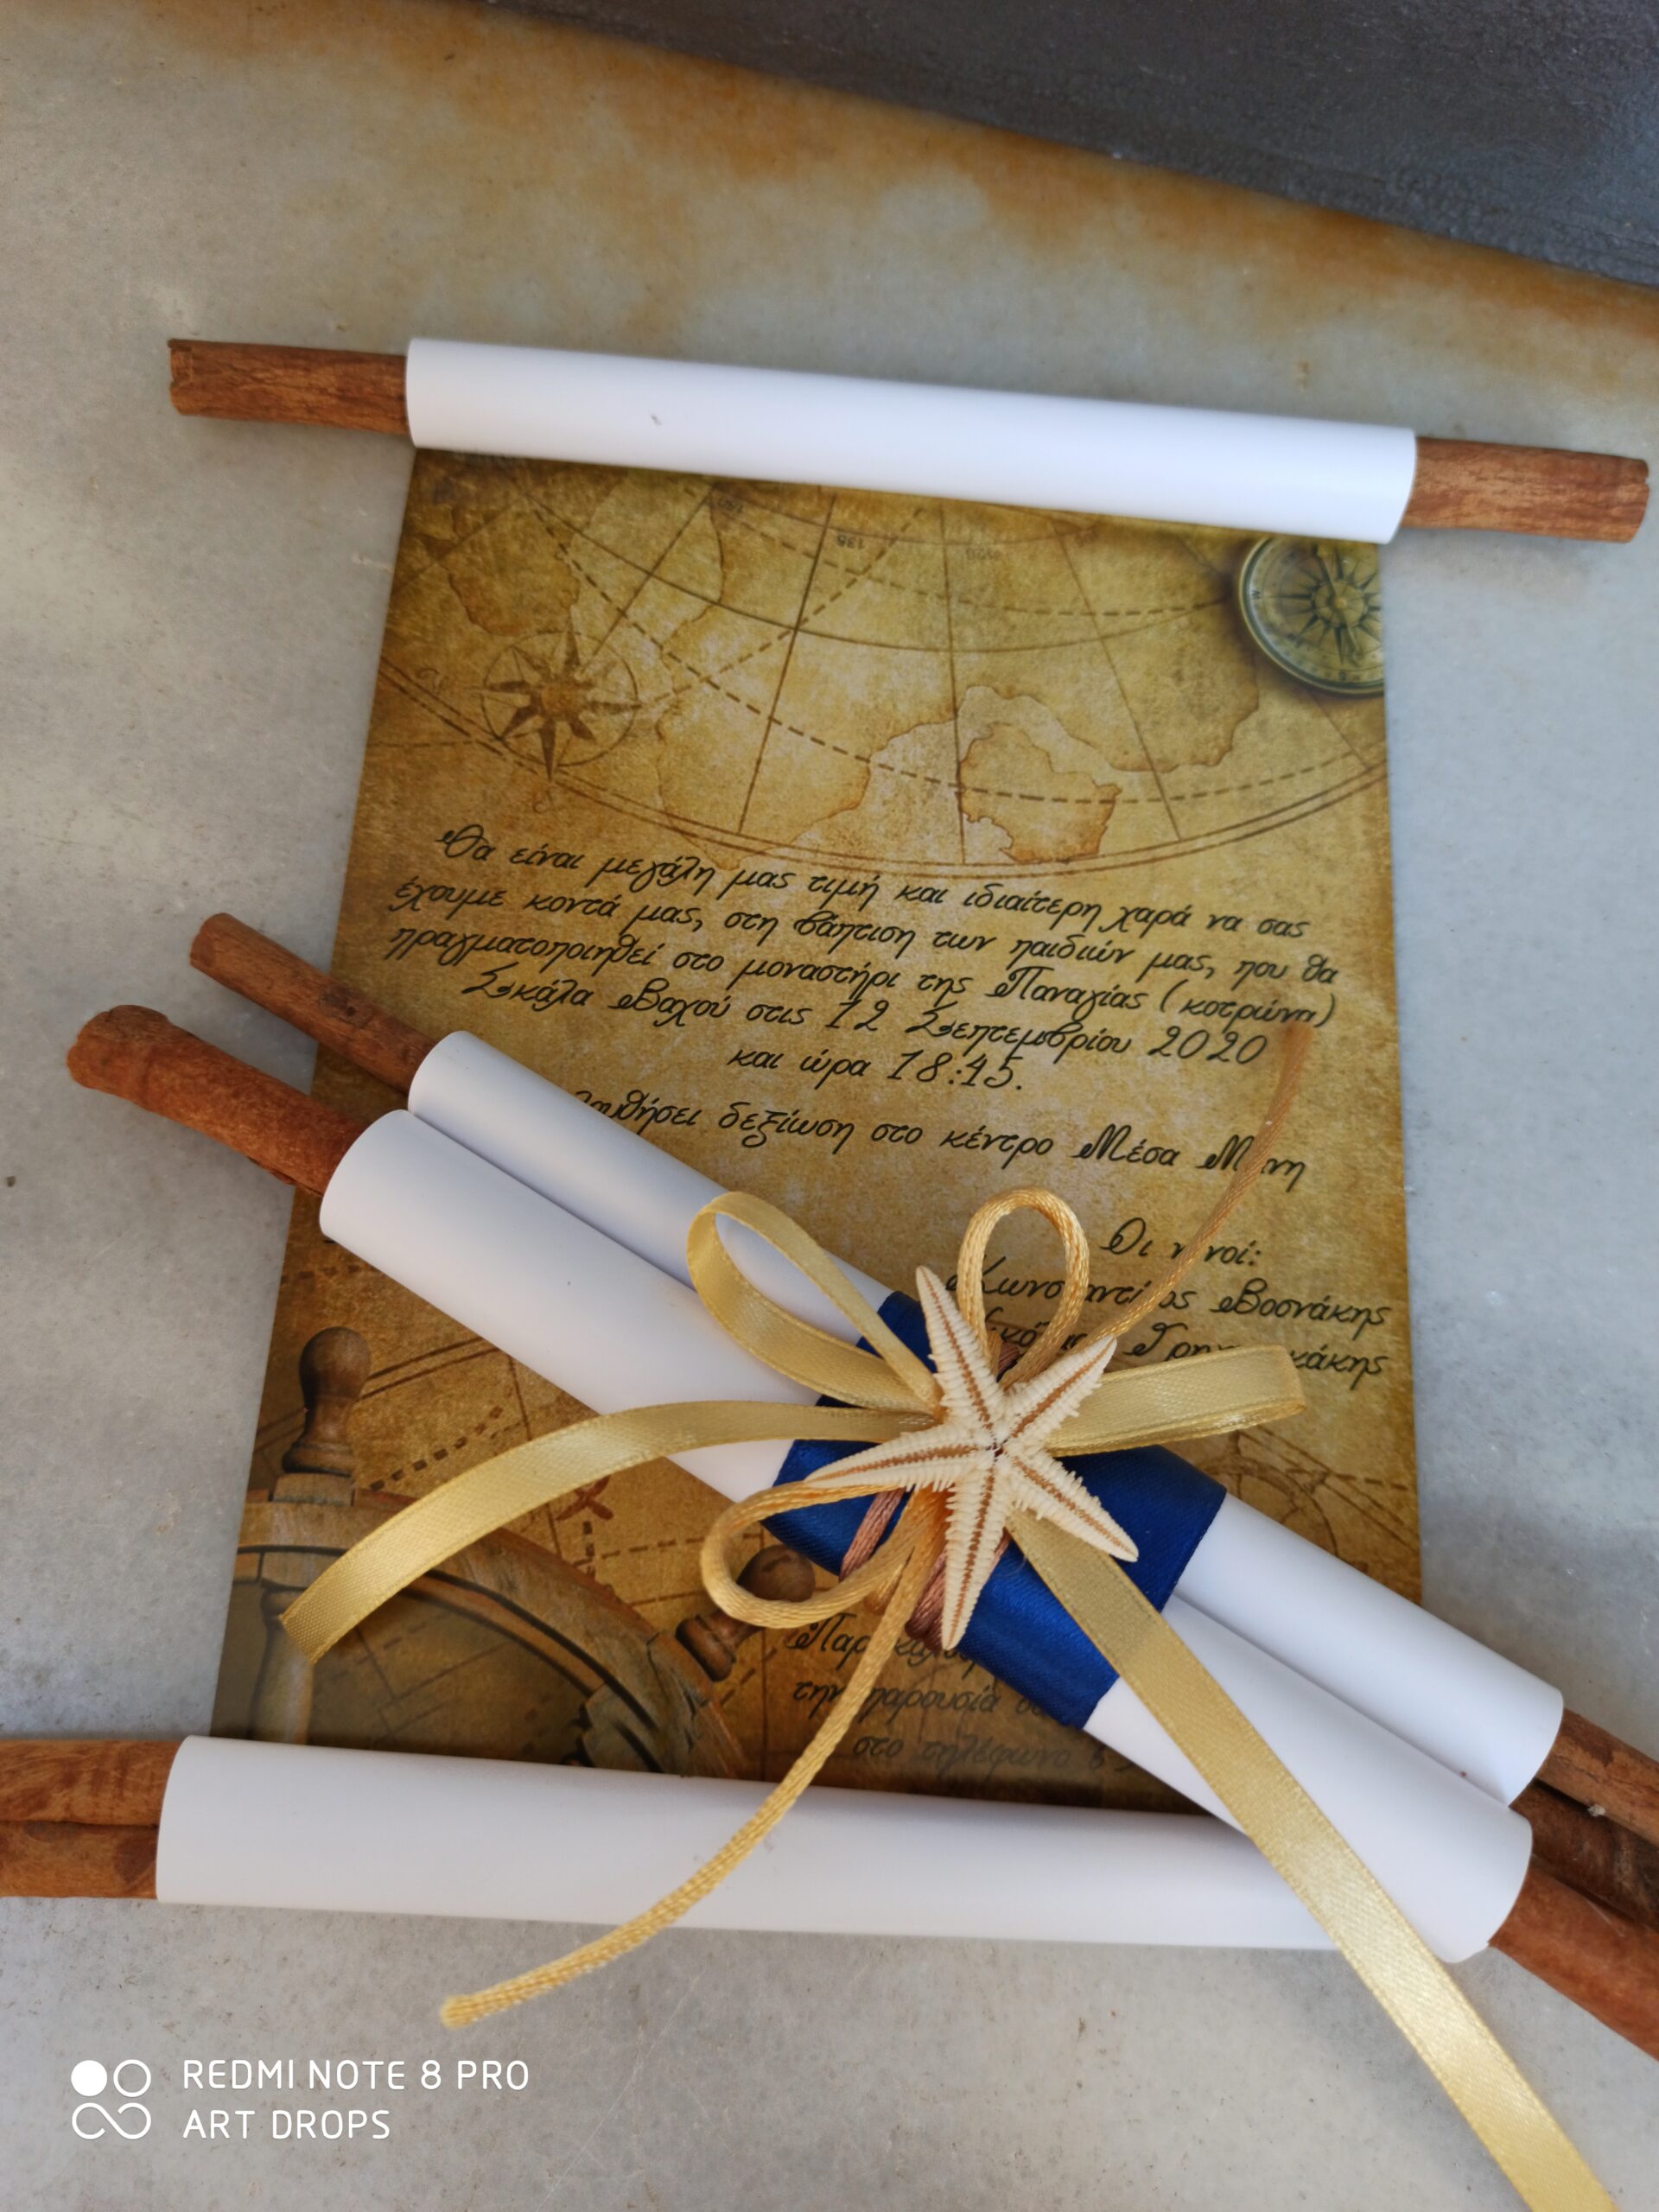 Θα είναι μεγάλη μας τιμή και ιδιαίτερη χαρά να σας
έχουμε κοντά μας, στη βάπτιση των παιδιών μας, που θα
πραγματοποιηθεί στο μοναστήρι της Παναγίας (κοτρώνη)
Σκάλα Βαχού στις 12 Σεπτεμβρίου 2020
και ώρα 18:45.
δεξίωση στο κέντρο Μέσα
Οι νονοί:
Κωνσταντίνος Βοσνάκης
την παρουσία
στο τηλέφωνο
REDMI NOTE 8 PRO
ART DROPS